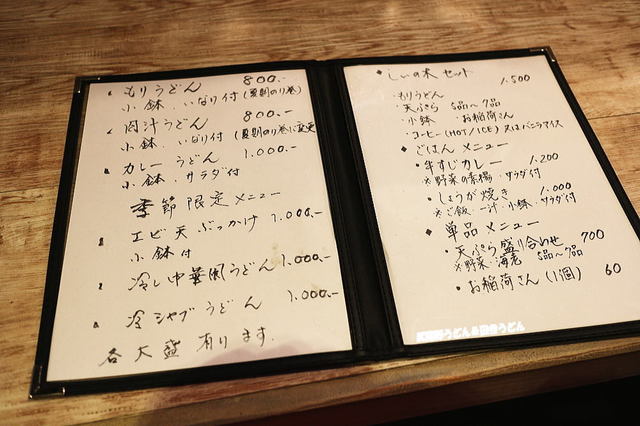 もりうどん 800.-
小鉢、いなり付(夏期のり巻)
肉汁うどん 800.-
小鉢、いなり付(夏期のり巻に変更
カレーうどん 1.000.-
小鉢、サラダ付
季節限定メニュー
エビ天ぶっかけ 1.000.-
小鉢付
冷し中華風うどん 1.000.-
冷シャブうどん 1.000.-
各大盛有ります.
しいの木セット 1.500
・もりうどん
・天ぷら 5品〜7品
・小鉢 ・お稲荷さん
・コーヒー(HOT/ICE)又はバニラアイス
◆ごはんメニュー
・牛すじカレー 1.200
※野菜の素揚・サラダ付
・しょうが焼き 1.000
※ご飯・一汁・小鉢・サラダ付
◆単品メニュー
・天ぷら盛り合わせ 700
※野菜・海老 5品〜7品
・お稲荷さん(1個) 60